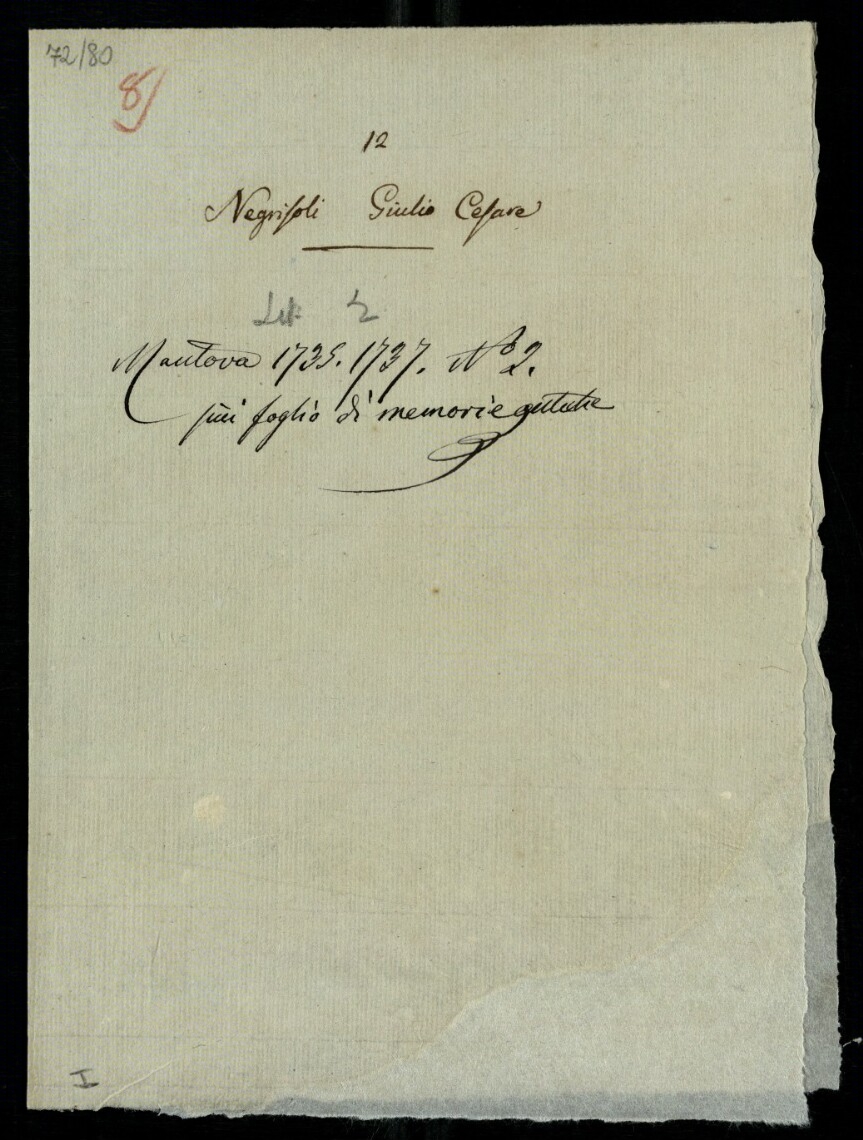 72/80
8)
12
Negrisoli Giulio Cesare
Lit. 2
Mantova 1735. 1737. N.º 2.
foglio di memorie
I